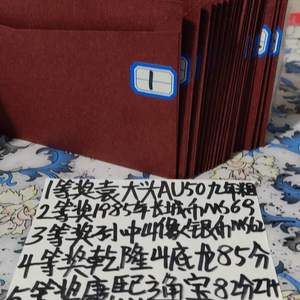 1
1等奖袁大头AU50九年粗
2等奖1985年长城币MS69
3等奖孙中山像银币MS62
4等奖乾隆山底龙85分
5等奖康熙